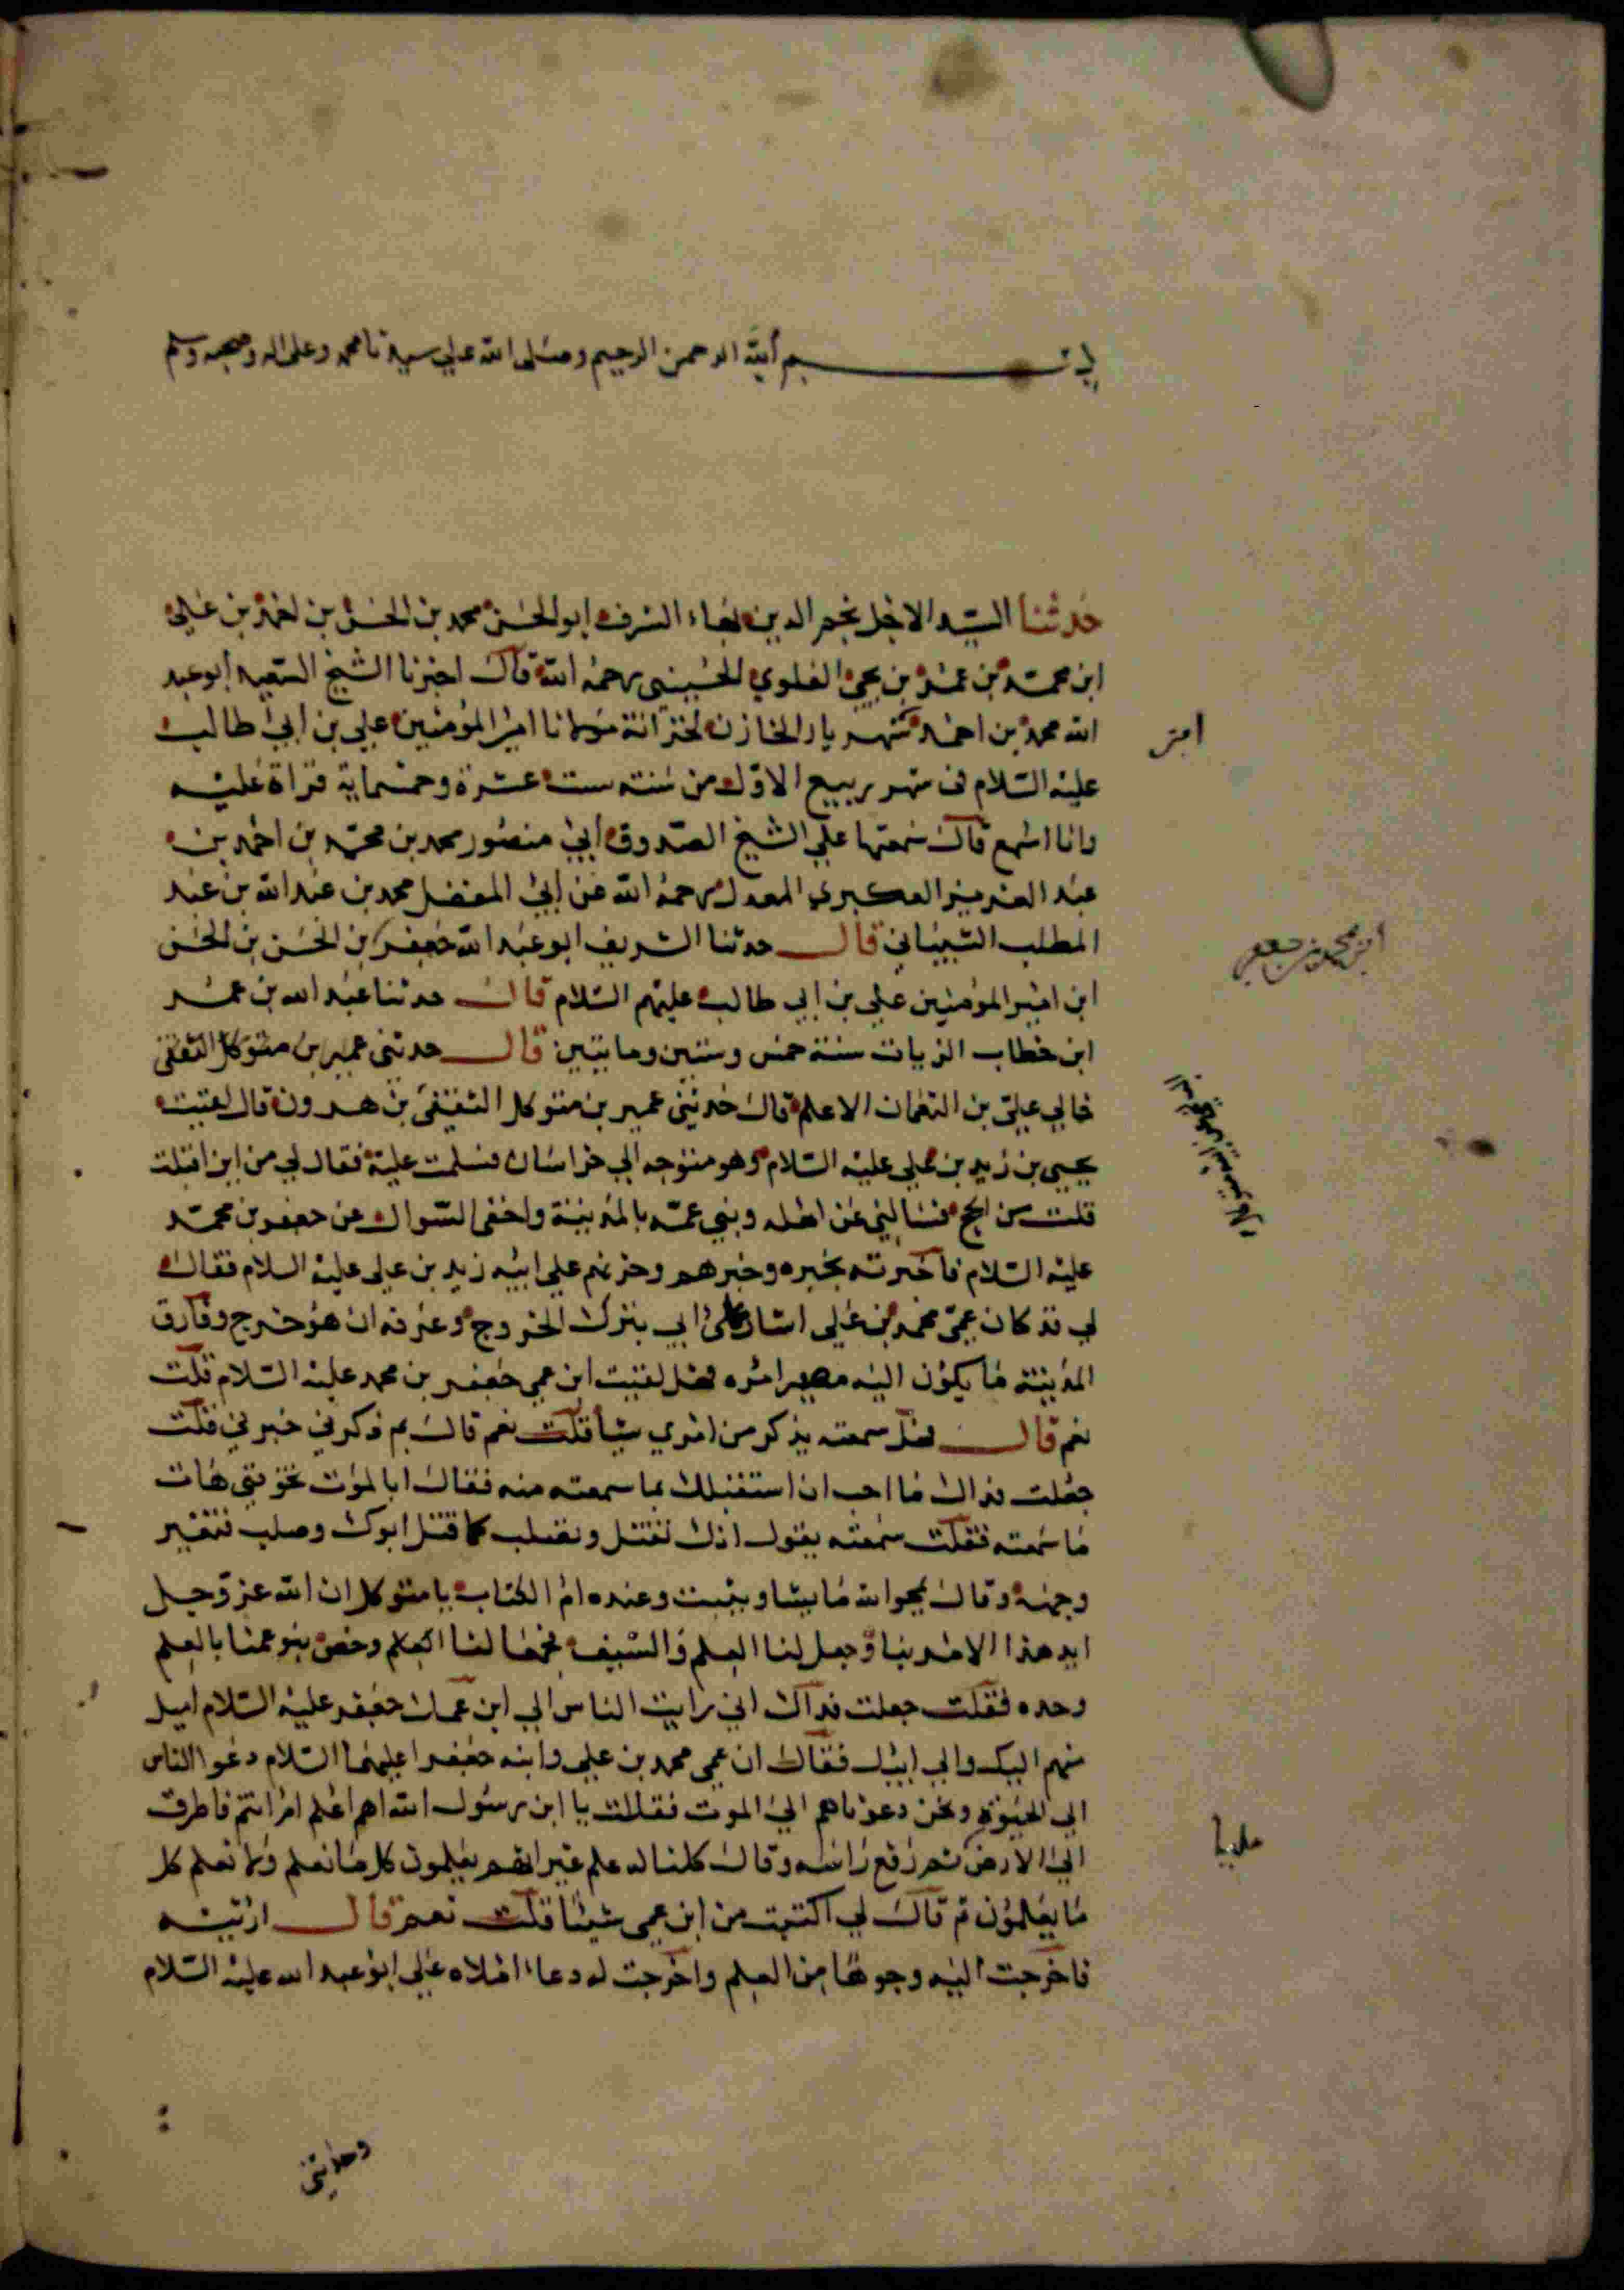 بسم الله الرحمن الرحيم وصلى الله على سيدنا محمد وعلى اله وصحبه وسلم
حدثنا السيد الاجل نجم الدين بهاء الشرف ابو الحسن محمد بن الحسن بن احمد بن علي
ابن محمد بن عمر بن يحيى العلوي الحسيني رحمه الله قال اخبرنا الشيخ السعيد ابو عبد
الله محمد بن احمد شهريار الخازن لخزانة مولانا امير المؤمنين علي بن ابي طالب
امير
عليه السلام في شهر ربيع الاول من سنة ست عشرة وخمسماية قراة عليه
وانا اسمع قال سمعتها على الشيخ الصدوق ابي منصور محمد بن محمد بن احمد بن
عبد العزيز العكبري المعدل رحمه الله عن ابي المفضل محمد بن عبد الله بن عبد
المطلب الشيباني قال حدثنا الشريف ابو عبد الله جعفر بن الحسن بن الحسن
ابن محمد بن جعفر
ابن امير المؤمنين علي بن ابي طالب عليهم السلام قال حدثنا عبد الله بن عمر
ابن خطاب الزيات سنة خمس وستين ومايتين قال حدثني عمير بن متوكل الثقفي
خالي علي بن النعمان الاعلم قال حدثني عمير بن متوكل الثقفي بن هرون قال لقيت
يحيى بن زيد بن علي عليه السلام وهو متوجه الى خراسان فسلمت عليه فقال لي من اين اقبلت
قلت من الحج فسالني عن اهله وبني عمه بالمدينة واحفى السوال عن جعفر بن محمد
عليه السلام فاخبرته بخبره وخبرهم وحزنهم على ابيه زيد بن علي عليه السلام فقال
لي قد كان عمي محمد بن علي اشار على ابي بترك الخروج وعرفه ان هو خرج وفارق
المدينة ما يكون اليه مصير امره فهل لقيت ابن عمي جعفر بن محمد عليه السلام قلت
نعم قال فهل سمعته يذكر من امري شيأ قلت نعم قال بم ذكرني خبرني قلت
جعلت فداك ما احب ان استقبلك بما سمعته منه فقال ابالموت تخوفني هات
ما سمعته فقلت سمعته يقول انك تقتل وتصلب كما قتل ابوك وصلب فتغير
وجهه وقال يمحو الله ما يشا ويثبت وعنده ام الكتاب يا متوكل ان الله عز وجل
ايد هذا الامر بنا وجعل لنا العلم والسيف فجمعا لنا العلم وخص بنو عمنا بالعلم
وحده فقلت جعلت فداك اني رايت الناس الى ابن عمك جعفر عليه السلام اميل
منهم اليك والى ابيك فقال ان عمي محمد بن علي وابنه جعفرا عليهما السلام دعوا الناس
الى الحيوة ونحن دعوناهم الى الموت فقلت يا ابن رسول الله اهم اعلم ام انتم فاطرق
الى الارض ثم رفع راسه وقال كلنا له علم غير انهم يعلمون كل ما نعلم ولا نعلم كل
مليا
ما يعلمون ثم قال لي اكتبت من ابن عمي شيئا قلت نعم قال ارنيه
فاخرجت اليه وجوها من العلم واخرجت له دعاء املاه علي ابو عبد الله عليه السلام
وحدثني